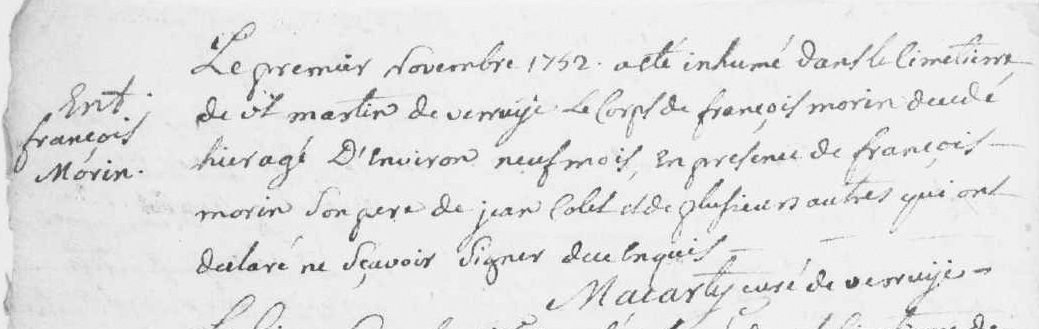 Ent.
françois
Morin.
Le premier Novembre 1752. a esté inhumé dans le Cimetierre
de st martin de verruije Le Corps de françois morin decedé
hier agé D'Environ neuf mois, En presence de françois
morin Son pere de jean Colet et de plusieurs autres qui ont
declaré ne Sçavoir Signer de ce Enquis
Macarty curé de verruije